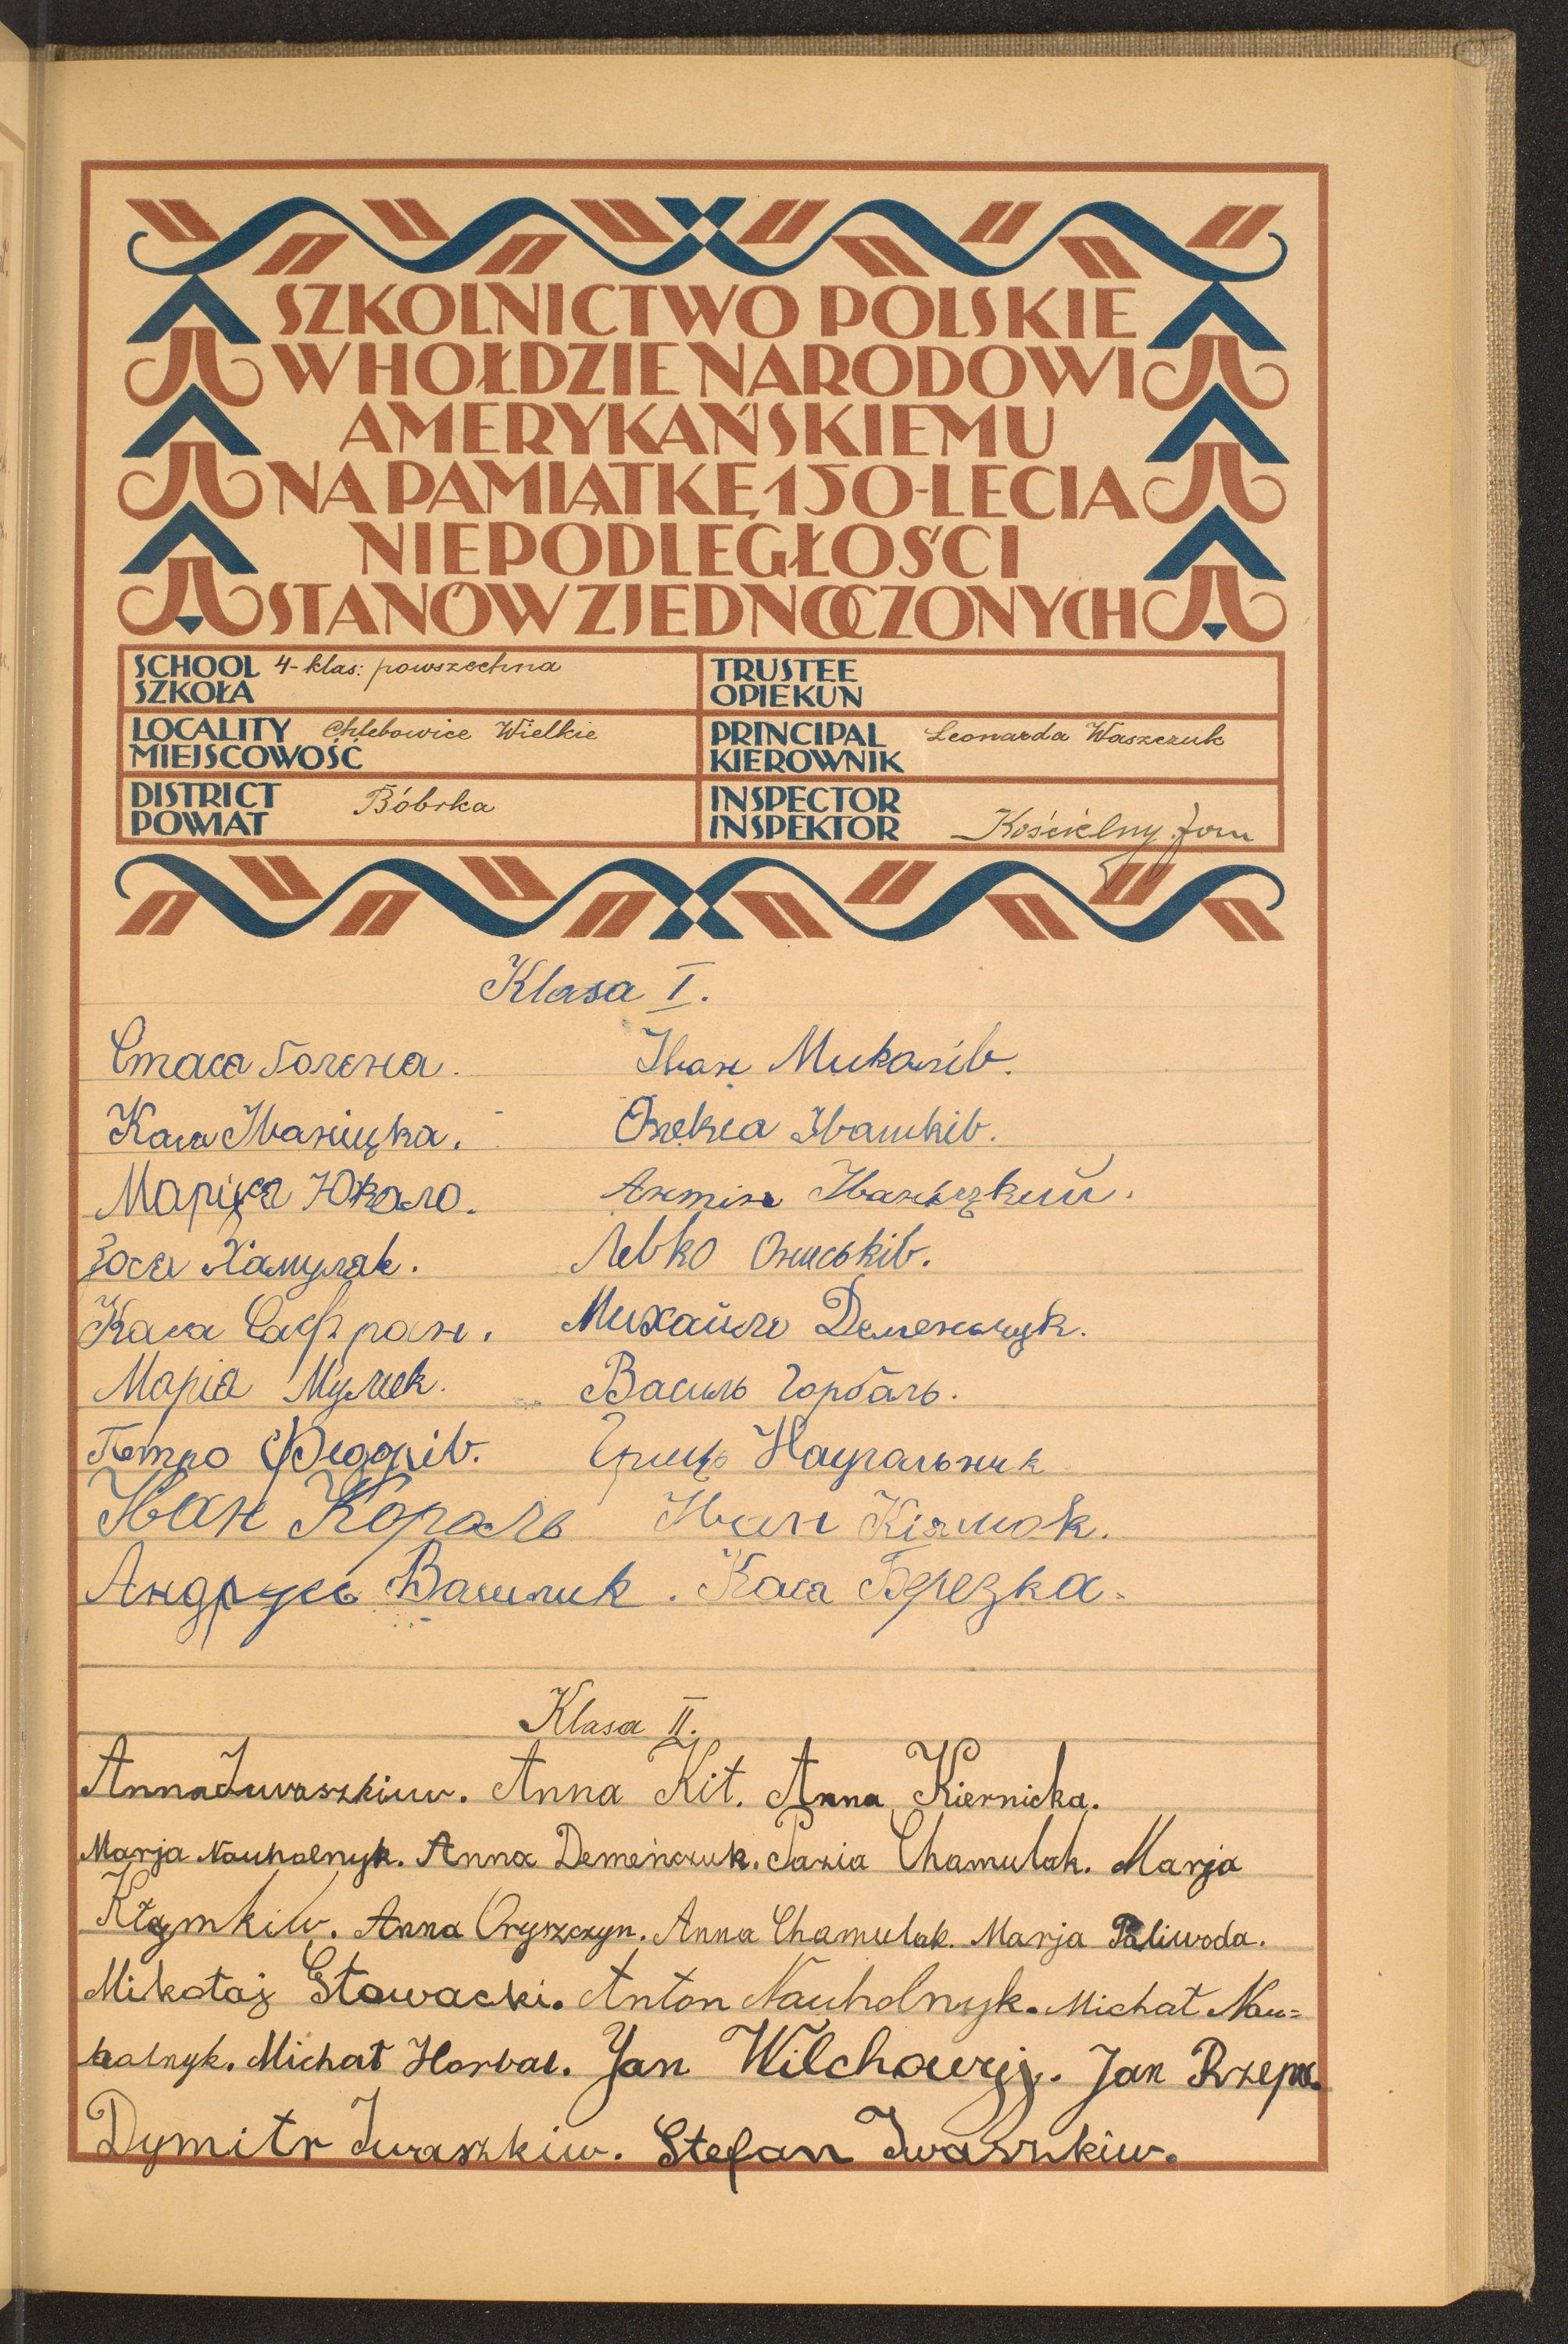 SZKOLNICTWO POLSKIE
W HOŁDZIE NARODOWI
AMERYKAŃSKIEMU
NA PAMIĄTKĘ 150-LECIA
NIEPODLEGŁOŚCI
STANÓW ZJEDNOCZONYCH
SCHOOL 4-klas: powszechna
SZKOŁA
TRUSTEE
OPIEKUN
LOCALITY Chlebowice Wielkie
MIEJSCOWOŚĆ
PRINCIPAL Leonarda Waszczuk
KIEROWNIK
DISTRICT Bóbrka
POWIAT
INSPECTOR
INSPEKTOR Kościelny Jan
Klasa I.
Стася Голена. Іван Микалів.
Кася Іваніцка. Олекса Івашків.
Марійка Юкало. Антін Іваніцкий.
Зося Хамуляк. Левко Ониськів.
Кася Сафран. Михайло Деменьчук.
Марія Мулик. Василь Горбаль.
Петро Федорів. Гриць Наугольник
Іван Кораль Іван Кізмок.
Андрусь Василик. Кася Березка.
Klasa II.
Anna Iwaszkiuw. Anna Kit. Anna Kiernicka.
Marja Nauholnyk. Anna Demeńczuk. Pazia Chamulak. Marja
Kłymkiw. Anna Oryszczyn. Anna Chamulak. Marja Paliwoda.
Mikołaj Słowacki. Anton Nauholnyk. Michał Nau=
holnyk. Michał Horbal. Jan Wilchowyj. Jan Rzepa.
Dymitr Iwaszkiw. Stefan Iwaszkiw.